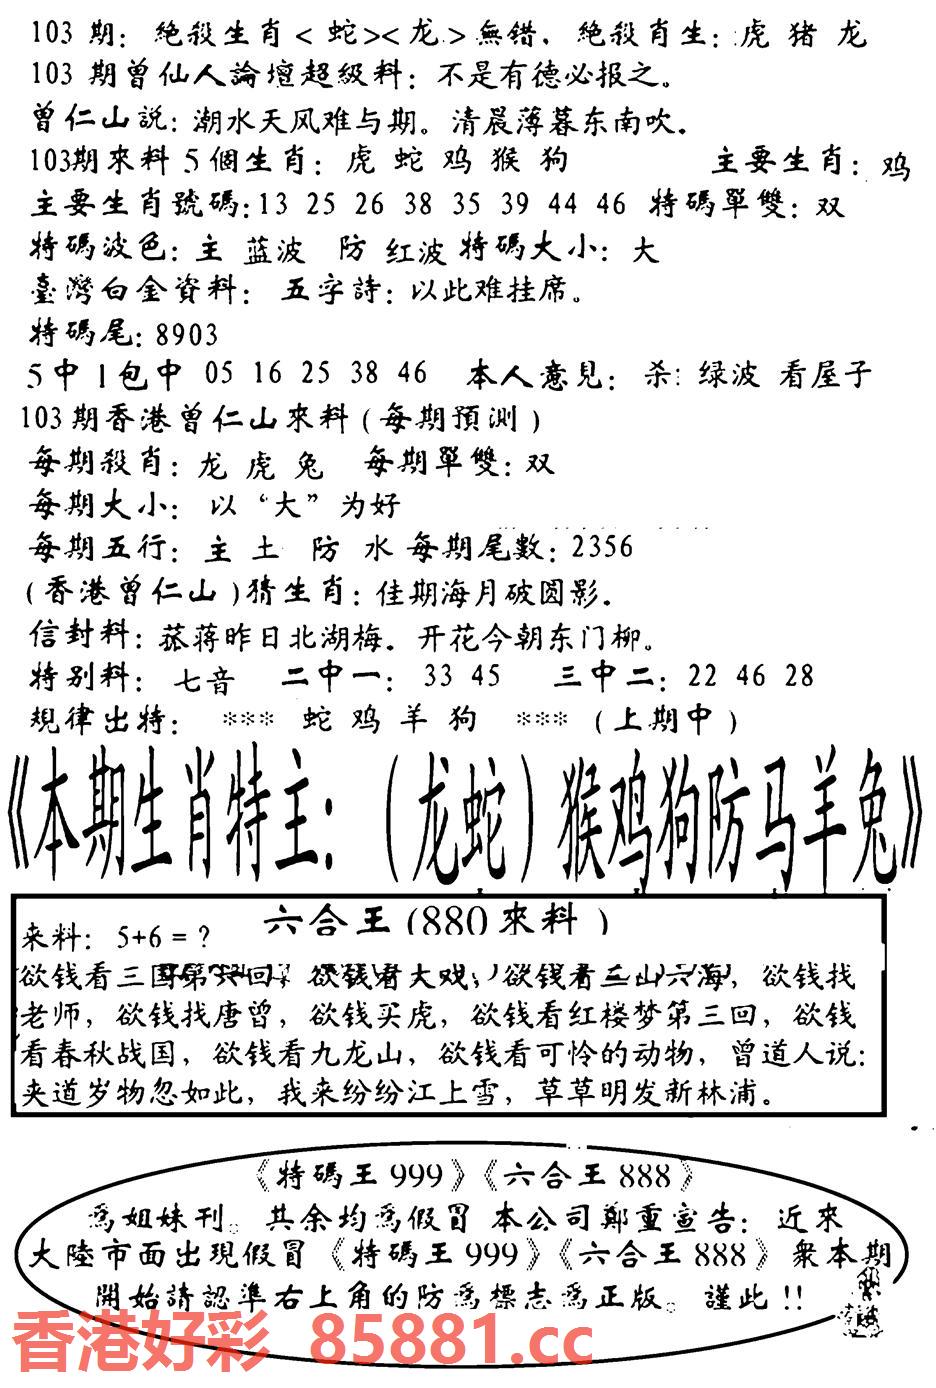 103 期: 絶殺生肖 < 蛇 >< 龙 > 無错. 絶殺肖生: 虎 猪 龙
103 期曾仙人論壇超級料: 不是有德必报之。
曾仁山説: 潮水天风难与期。清晨薄暮东南吹.
103期來料 5 個生肖: 虎 蛇 鸡 猴 狗 主要生肖: 鸡
主要生肖號碼:13 25 26 38 35 39 44 46 特碼單雙: 双
特碼波色: 主 蓝波 防 红波 特碼大小: 大
臺灣白金資料: 五字詩: 以此难挂席。
特碼尾: 8903
5 中 1 包中 05 16 25 38 46 本人意見: 杀: 绿波 看屋子
103 期香港曾仁山來料 ( 每期預測 )
每期殺肖: 龙 虎 兔 每期單雙: 双
每期大小: 以“大”为好
每期五行: 主 土 防 水 每期尾數: 2356
( 香港曾仁山 ) 猜生肖: 佳期海月破圆影.
信封料: 菰蒋昨日北湖梅. 开花今朝东门柳。
特别料: 七音 二中一: 33 45 三中二: 22 46 28
規律出特: *** 蛇 鸡 羊 狗 *** ( 上期中 )
《本期生肖特主: (龙蛇) 猴鸡狗防马羊兔》
六合王 (880 來料 )
来料: 5+6 = ?
欲钱看三国第六回, 欲钱看大戏, 欲钱看三山六海, 欲钱找
老师, 欲钱找唐曾, 欲钱买虎, 欲钱看红楼梦第三回, 欲钱
看春秋战国, 欲钱看九龙山, 欲钱看可怜的动物, 曾道人说:
夹道岁物忽如此, 我来纷纷江上雪, 草草明发新林浦。
《特碼王 999》《六合王 888》
爲姐妹刊。其余均爲假冒 本公司鄭重宣告: 近來
大陸市面出現假冒《特碼王 999》《六合王 888》衆本期
開始請認準右上角的防爲標志爲正版。謹此 !!
香港好彩 85881.cc